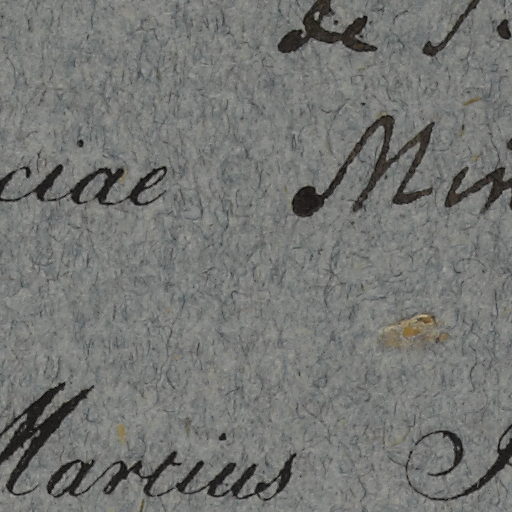 de
ciae Min
Martius